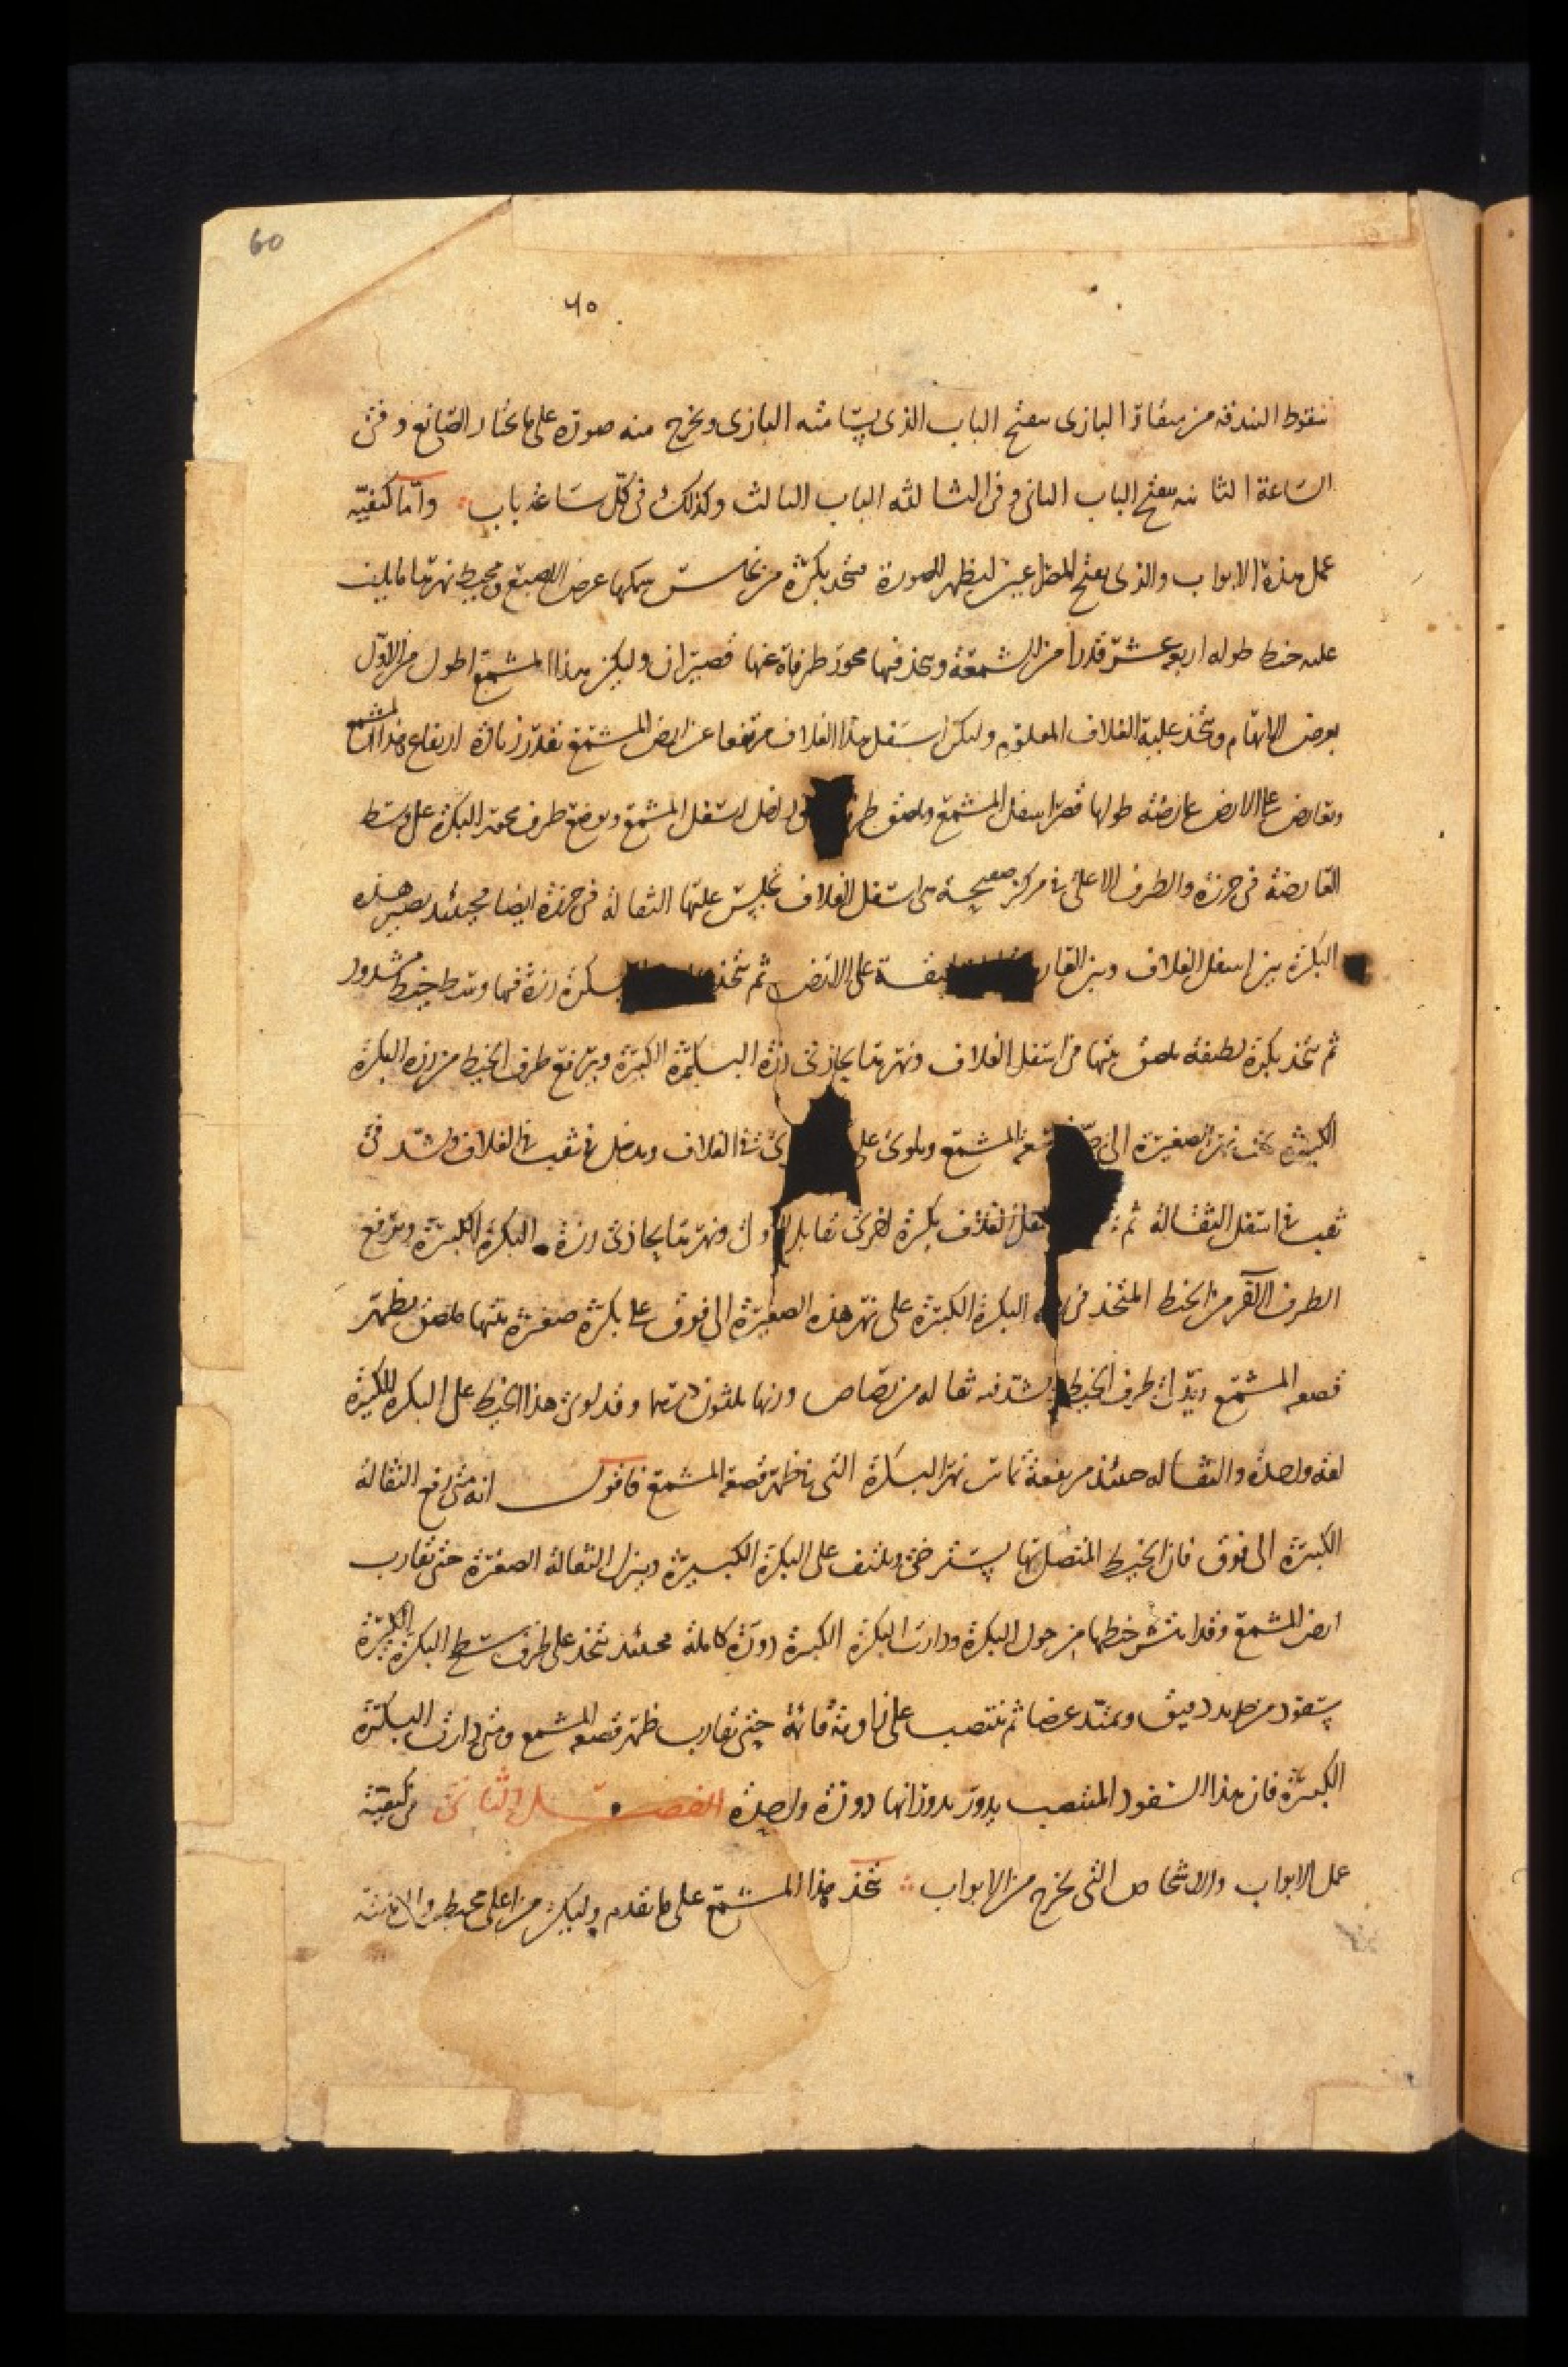 60
٦٠
سقوط البندقه من منقار البازى ينفتح الباب الذى يسامته البازى ويخرج منه صورة على ما يختار الصانع وفى
الساعة الثانيه ينفتح الباب الثانى وفى الثالثه الباب الثالث وكذلك فى كل ساعة باب واما كيفيه
عمل هذه الابواب والذى يفتح المصراعين ليظهر الصورة يتخذ بكرة من نحاس سمكها عرض اصبع ومحيط نهرها ما يلتف
عليه خيط طوله اربع عشر قدرا من الشمعة ويتخذ فيها محور طرفاه عنها قصيران وليكن هذا المشمع اطول من الاول
بعرض الابهام ويتخذ عليه الغلاف المعلوم وليكن اسفل هذا الغلاف مرتفعا عن ارض المشمع بقدر زيادة ارتفاع هذا المشمع
ويعارض على الارض عارضه طولها قصر اسفل المشمع ويلصق داخل اسفل المشمع ويوضع طرف محور البكرة على وسط
العارضة فى خرزة والطرف الاعلى فى مركز صفيحة من اسفل الغلاف يجلس عليها الثقالة فى خرزة ايضا فحينئذ يصير هذه
البكرة بين اسفل الغلاف وبين على الارض ثم يتخذ رزة فيها وسط خيط مشدود
ثم يتخذ بكرة لطيفه يلصق بيتها من اسفل الغلاف ونهرها يحاذى رزة البكرة الكبيرة ويرفع طرف الخيط من رزه البكرة
الكبيرة تحت نهر الصغيرة الى المشمع ويلوى على فى الغلاف ويدخل فى ثقب فى الغلاف ويشد فى
ثقب فى اسفل الثقالة ثم الغلاف بكرة اخرى تقابل ونهرها يحاذى رزة البكرة الكبيرة ويرفع
الطرف الاخر من الخيط المتخذ فى البكرة الكبيرة على نهر هذه الصغيرة الى فوق على بكرة صغيرة بيتها ملصق بظهر
قصعه المشمع ويدلى طرف الخيط يشد فيه ثقاله من رصاص وزنها ثلثون درهما وقد لوى هذا الخيط على البكرة الكبيرة
لفه واحدة والثقاله حينئذ مرتفعة تماس نهر البكرة التى فى ظهر قصعه المشمع فاقول انه متى رفع الثقالة
الكبيرة الى فوق فان الخيط المتصل بها يسترخى ويلتف على البكرة الكبيرة وينزل الثقالة الصغيرة حتى تقارب
ارض المشمع وقد انتشر خيطها من حول البكرة ودارت البكرة الكبيرة دورة كاملة فحينئذ يتخذ على طرف سطح البكرة الكبيرة
سفود من حديد دقيق ويمتد عرضا ثم ينتصب على زاوية قائمة حتى تقارب ظهر قصعه المشمع ومتى دارت البكرة
الكبيرة فان هذا السفود المنتصب يدور بدورانها دورة واحدة الفصل الثانى فى كيفية
عمل الابواب والاشخاص التى تخرج من الابواب يتخذ هذا المشمع على ما تقدم وليكن من اعلى محيط